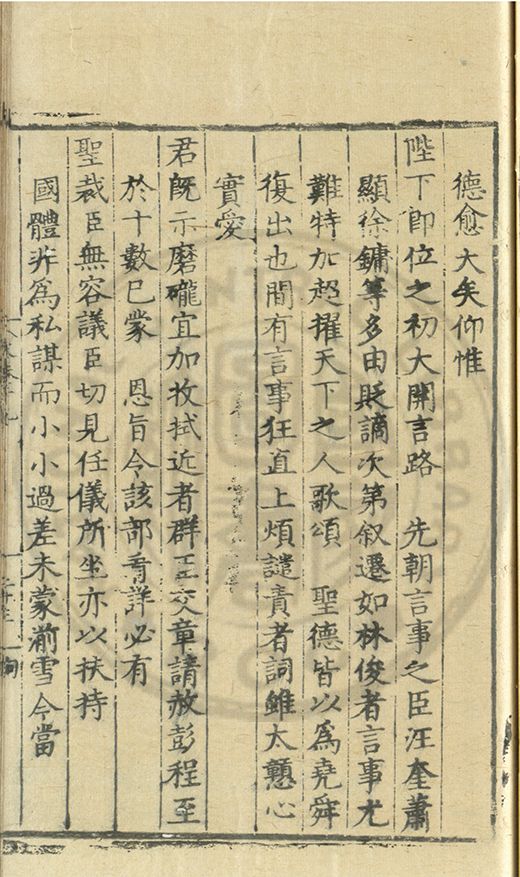 德愈大矣仰惟
陛下卽位之初大開言路　先朝言事之臣汪奎蕭
顯徐鏞等多由貶謫次第叙遷如林俊者言事尤
難特加超擢天下之人歌頌　聖德皆以爲堯舜
復出也間有言事狂直上煩譴責者詞雖太戇心
實愛
君旣示磨礲宜加牧拭近者群臣交章請赦彭程至
於十數已蒙　恩旨令該部看詳必有
聖裁臣無容議臣切見任儀所坐亦以扶持
國體非爲私謀而小小過差未蒙湔雪今當